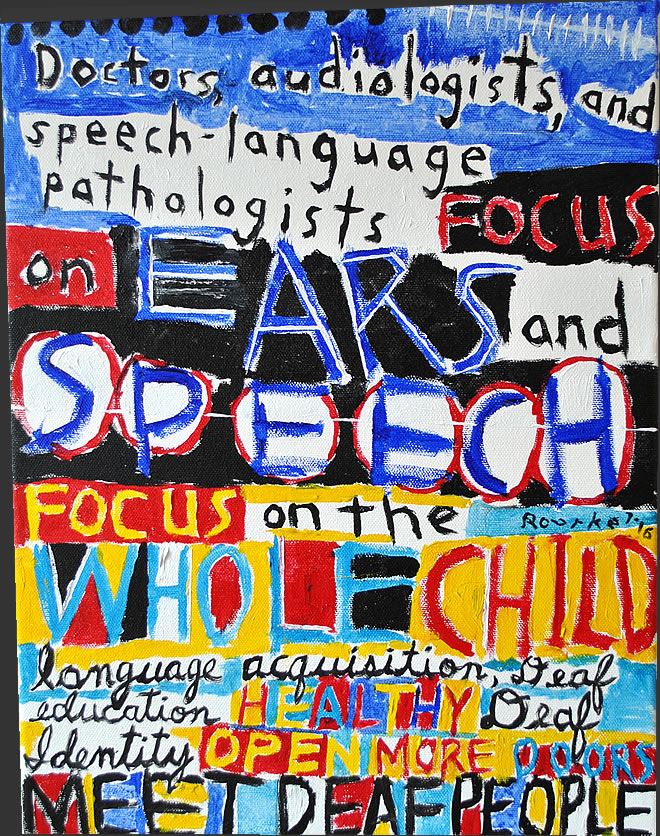 Doctors, audiologists, and
speech-language
pathologists FOCUS
on EARS and
SPEECH
FOCUS on the
Rourke '16
WHOLE CHILD
language acquisition, Deaf
education HEALTHY Deaf
Identity OPEN MORE DOORS
MEET DEAF PEOPLE